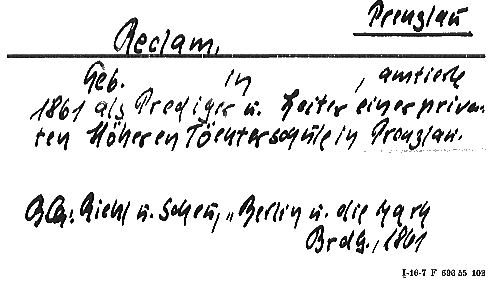 Prenzlau
Reclam,
Geb. in , amtierte
1861 als Prediger u. Leiter einer priva-
ten Höheren Töchterschule in Prenzlau.
Riehl u. Scheu, „Berlin u. die Mark
Brdg., 1861
I-16-7 F 696 55 102